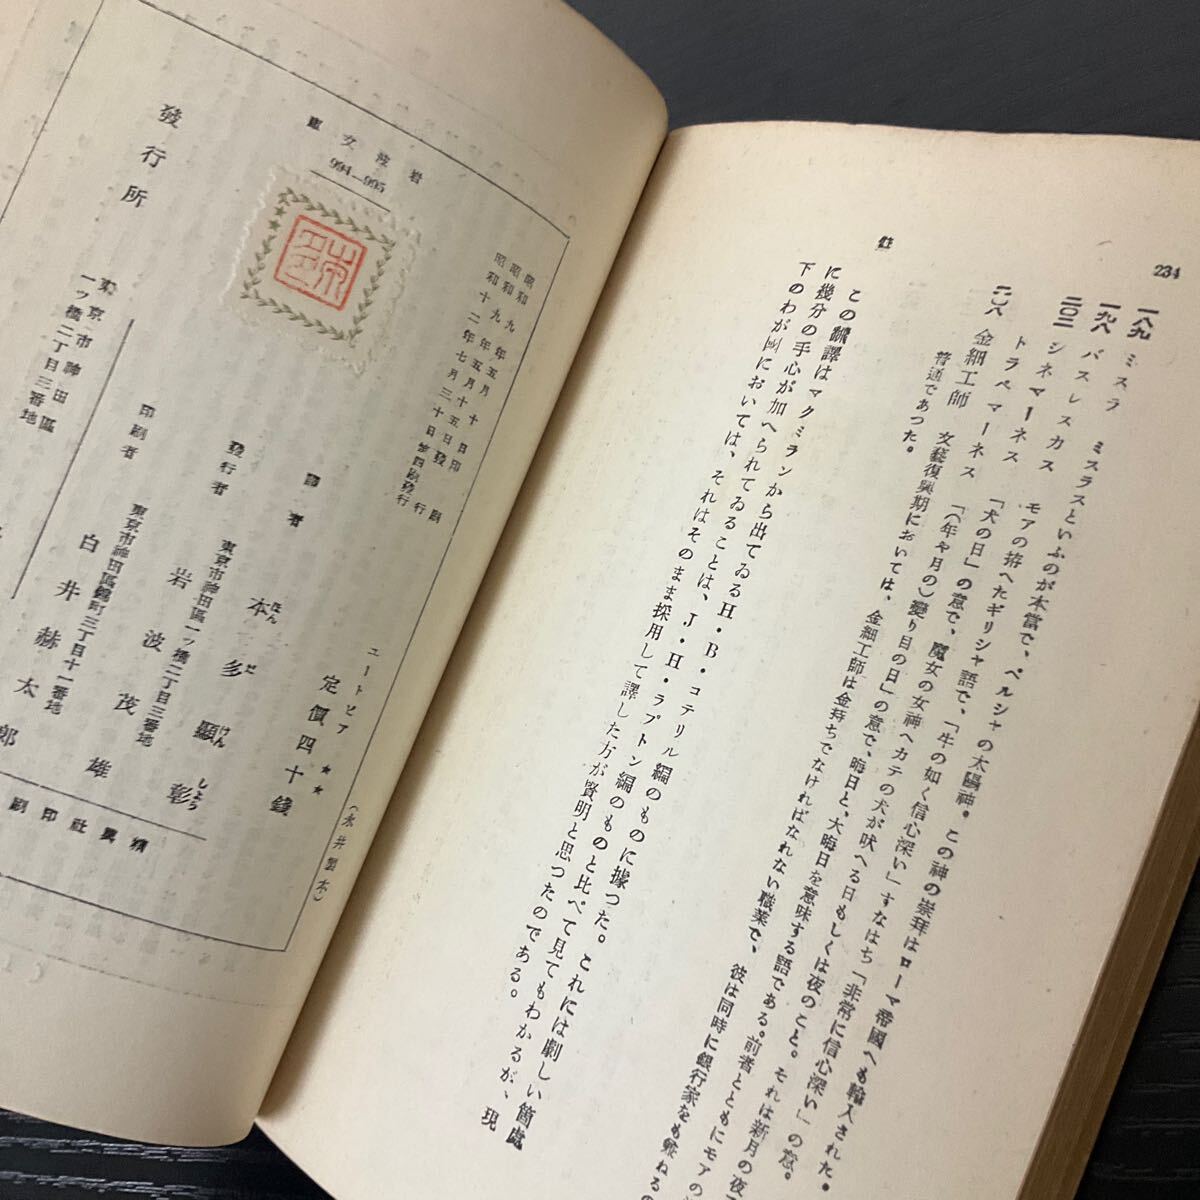 234
註
一八九 ミスラ ミスラスといふのが本當で、ペルシャの太陽神。この神の崇拜はローマ帝國へも輸入された。
一九八 バスレスカス モアの拵へたギリシャ語で、「牛の如く信心深い」すなはち「非常に信心深い」の意。
二〇二 シネマーネス 「犬の日」の意で、魔女の女神ヘカテの犬が吠へる日もしくは夜のこと。それは新月の夜
トラペマーネス 「(年や月の)變り目の日」の意で、晦日と、大晦日を意味する語である。前者とともにモアの
二〇八 金細工師 文藝復興期においては、金細工師は金持ちでなければなれない職業で、彼は同時に銀行家をも兼ねるの
普通であつた。
この飜譯はマクミランから出てゐるH・B・コテリル編のものに據つた。これには劇しい箇處
に幾分の手心が加へられてゐることは、J・H・ラプトン編のものと比べて見てもわかるが、現
下のわが國においては、それはそのまま採用して譯した方が賢明と思つたのである。
岩波文庫
994—995
昭和九年五月十日印刷
昭和九年五月十五日發行
昭和十二年七月三十日第四刷發行
ユートピア
★★
定價四十錢
(永井製本)
譯者 本多顯彰
ほんだけんしょう
東京市神田區一ツ橋二丁目三番地
發行者 岩波茂雄
東京市神田區錦町三丁目十一番地
印刷者 白井赫太郎
發行所
東京市神田區
一ツ橋二丁目三番地
精興社印刷